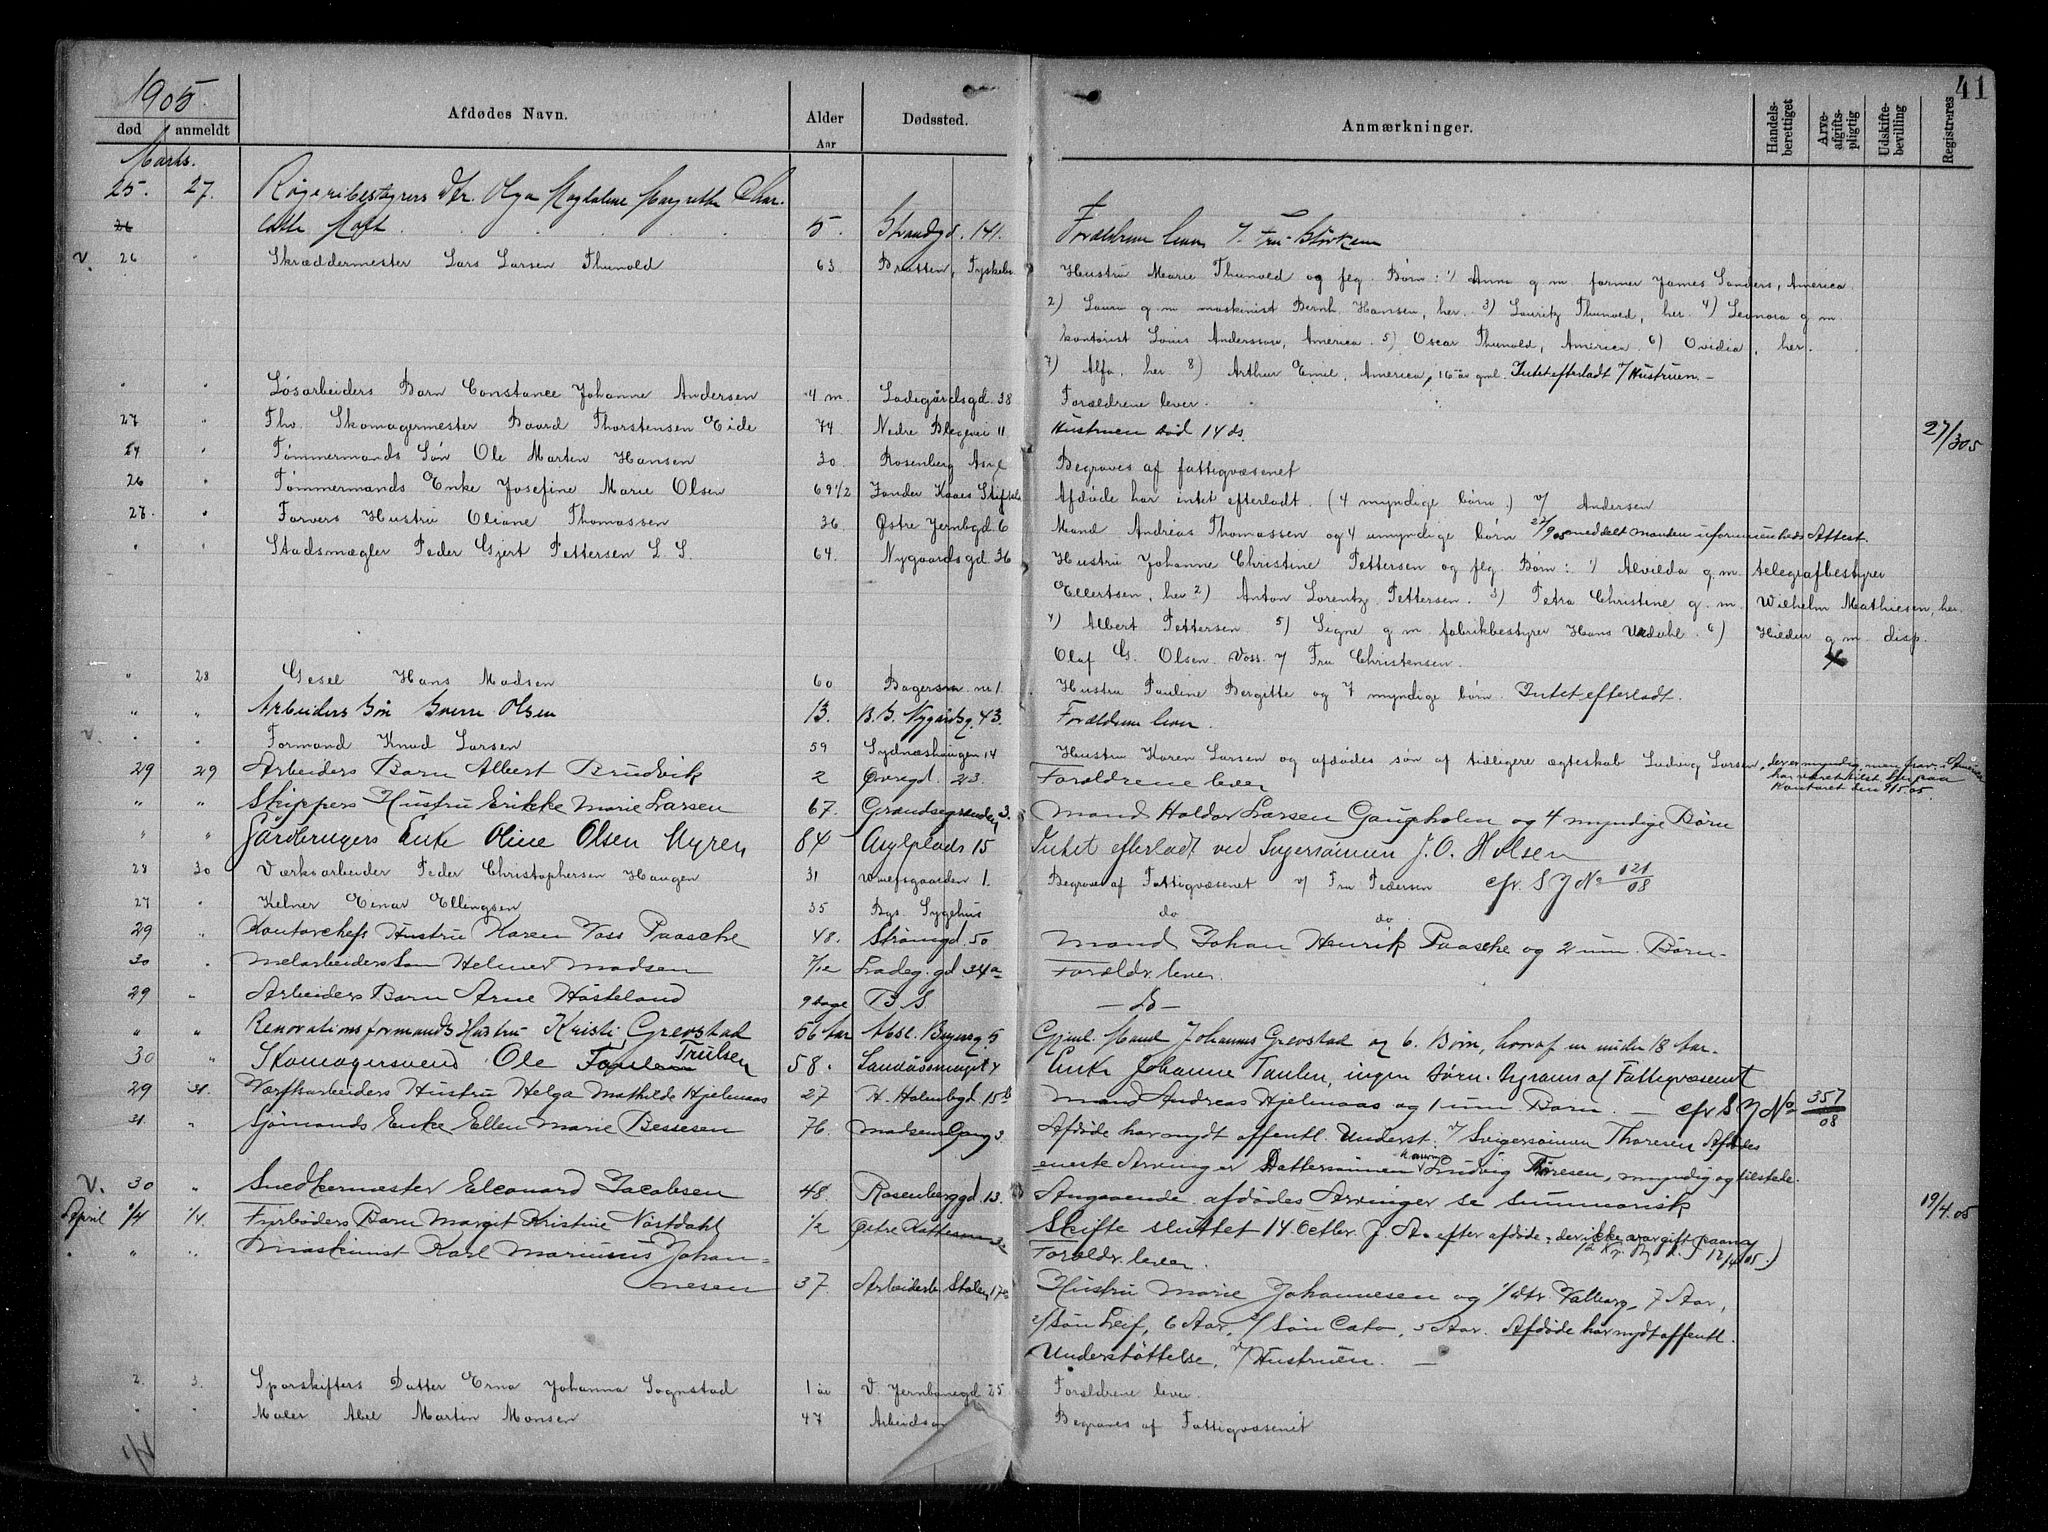 41
1905.
død anmeldt Afdødes Navn. Alder Aar Dødssted. Anmærkninger. Handels-berettiget Arve-afgifts-pligtig Udskifte-bevilling Registreres
Marts.
25. 27. Røgeribestyrers Dtr. Olga Magdalene Margrethe Char-
26 lotte 5. Strandgd. 141. Forældrene lever
v. 26 " Skræddermester Lars Larsen Thunold 63 Bratten, Hustru Marie Thunold og flg. Børn: 1) Anna g. m. farmer James Sanders, America
2) Laura g. m. maskinist Bernh. Hansen, her. 3) Lauritz Thunold, her. 4) Leonora g. m.
kontorist Louis Andersson, America. 5) Oscar Thunold, America 6) Ovidia, her.
7) Alfa, her 8) Arthur Emil, America, 16 år gml. Intet efterladt v/ Hustruen. –
" " Løsarbeiders Barn Constance Johanne Andersen 4 m. Ladegårdsgd. 38 Forældrene lever.
27 " Fhv. Skomagermester Baard Thorstensen Eide 74 Nedre Blegevei 11 Hustruen død 14 ds. 27/3 05
24 " Tømmermands Søn Ole Martin Hansen 30 Rosenberg Asyl Begraves af fattigvæsenet
26 " Tømmermands Enke Josefine Marie Olsen 69 1/2 Zander Kaaes Stiftelse Afdøde har intet efterladt. (4 myndige børn.) v/ Andersen
27. " Farvers Hustru Oliane Thomassen 36 Østre Jernbgd. 6 Mand Andreas Thomassen og 4 umyndige børn 22/9 05 meddelt manden uformuenheds Attest.
" " Stadsmægler Peder Gjert Pettersen L. S. 64. Nygaardsgd 36 Hustru Johanne Christine Pettersen og flg. Børn: 1) Alvilda g. m. telegrafbestyrer
Ellertsen, her 2) Anton Lorentz Pettersen. 3) Petra Christine g. m. Wilhelm Mathiesen, her.
4) Albert Pettersen 5) Signe g. m. fabrikbestyrer Hans Undahl. 6) g. m. disp.
Olaf G. Olsen. Voss. v/ Fru Christensen.
" 28 Gesel Hans Madsen 60 Bagersm. nr 1. Hustru Pauline Bergitte og 7 myndige børn. Intet efterladt.
" " Arbeiders Søn Sverre Olsen 13. B. S. Nygårdsg. 43. Forældrene lever.
v. " " Formand Knud Larsen 59 Sydneshaugen 14 Hustru Karen Larsen og afdødes søn af tidligere ægteskab Ludvig Larsen, der er myndig, men frav. i America
har været tilst. her paa
Kontoret den 9/5.05.
29 29 Arbeiders Barn Albert Brudvik 2 Øvregd. 23. Forældrene lever
" " Skippers Hustru Erikke Marie Larsen 67. Grændsegrenden 3. Mand Haldor Larsen Gaupholm og 4 myndige Børn
" " Gårdbrugers Enke Oline Olsen Myren 84 Asylplads 15 Intet efterladt ved Svigersønnen J. O. Holsen
28 30 Værksarbeider Peder Christophersen Haugen 31 1. Begraves af Fattigvæsenet v/ Fru Pedersen cfr. S J No 121/08
27 " Kelner Einar Ellingsen 35 Bys Sygehus do do
29 " Kontorchefs Hustru Karen Voss Paasche 48. Strømgd. 50. Mand Johan Henrik Paasche og 2 um. Børn-
30 " Melarbeiders Søn Helmer Madsen 7/12 Ladeg. gd. 34a Forældr. lever.
29 " Arbeiders Barn Arne Høsteland 9 dage B S – D –
" " Renovationsformands Hustru Kristi Grevstad 56 Aar 5 Gjenl. Mand Johannes Grevstad og 6. Børn, hvoraf en under 18 Aar.
30 " Skomagersvend Ole Trulsen 58. Enke Johanne Taulen, ingen Børn. Begraves af Fattigvæsenet
29 31. Værftsarbeiders Hustru Helga Mathilde Hjelmaas 27 H. Holmbgd. 15b Mand Andreas Hjelmaas og 1 um Barn. – cfr S J No 357/08
31. " Sjømands Enke Ellen Marie Bessesen 76. Madsens Gang 3. Afdøde har nydt offentl. Underst. v/ Svigersønnen Thoresen Afdødes
eneste Arvinger er Dattersønnen Ludvig Thoresen, myndig og tilstede.
v. 30 " Snedkermester Eleonard Jacobsen 48. Rosenberggd. 13. Angaaende afdødes Arvinger se summarisk
Skifte sluttet 14 Octbr. f. A. efter afdøde
19/4.05
April 1/4 1/4. Fyrbøders Barn Margit Kristine Nøstdahl 1/2 Østre Forældr. lever.
" " Maskinist Karl Marinus Johan-
nesen 37. 17 Hustru Marie Johannesen og 1/ dtr. Valborg, 7 Aar,
2/ Søn Leif, 6 Aar, 3/ Søn Cato, 5 Aar. Afdøde har nydt offentl.
Understøttelse, v/ Hustruen. –
2. 3. Sporskifters Datter Erna Johanna Sognstad 1 år V. Jernbanegd. 25. Forældrene lever.
Maler Abel Martin Monsen 47 Begraves af Fattigvæsenet